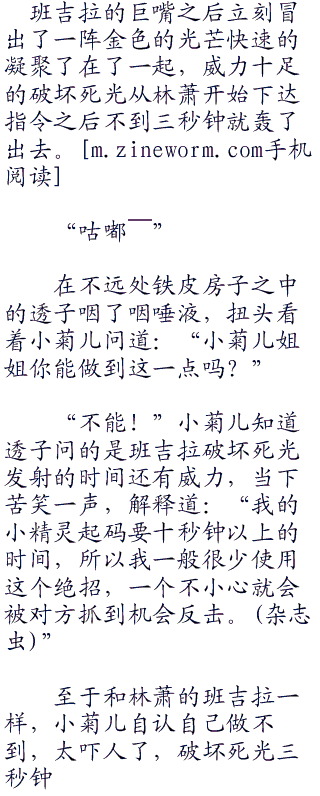 班吉拉的巨嘴之后立刻冒
出了一阵金色的光芒快速的
凝聚了在了一起，威力十足
的破坏死光从林萧开始下达
指令之后不到三秒钟就轰了
出去。[m.zineworm.com手机
阅读]
“咕嘟——”
在不远处铁皮房子之中
的透子咽了咽唾液，扭头看
着小菊儿问道：“小菊儿姐
姐你能做到这一点吗？”
“不能！”小菊儿知道
透子问的是班吉拉破坏死光
发射的时间还有威力，当下
苦笑一声，解释道：“我的
小精灵起码要十秒钟以上的
时间，所以我一般很少使用
这个绝招，一个不小心就会
被对方抓到机会反击。(杂志
虫)”
至于和林萧的班吉拉一
样，小菊儿自认自己做不
到，太吓人了，破坏死光三
秒钟